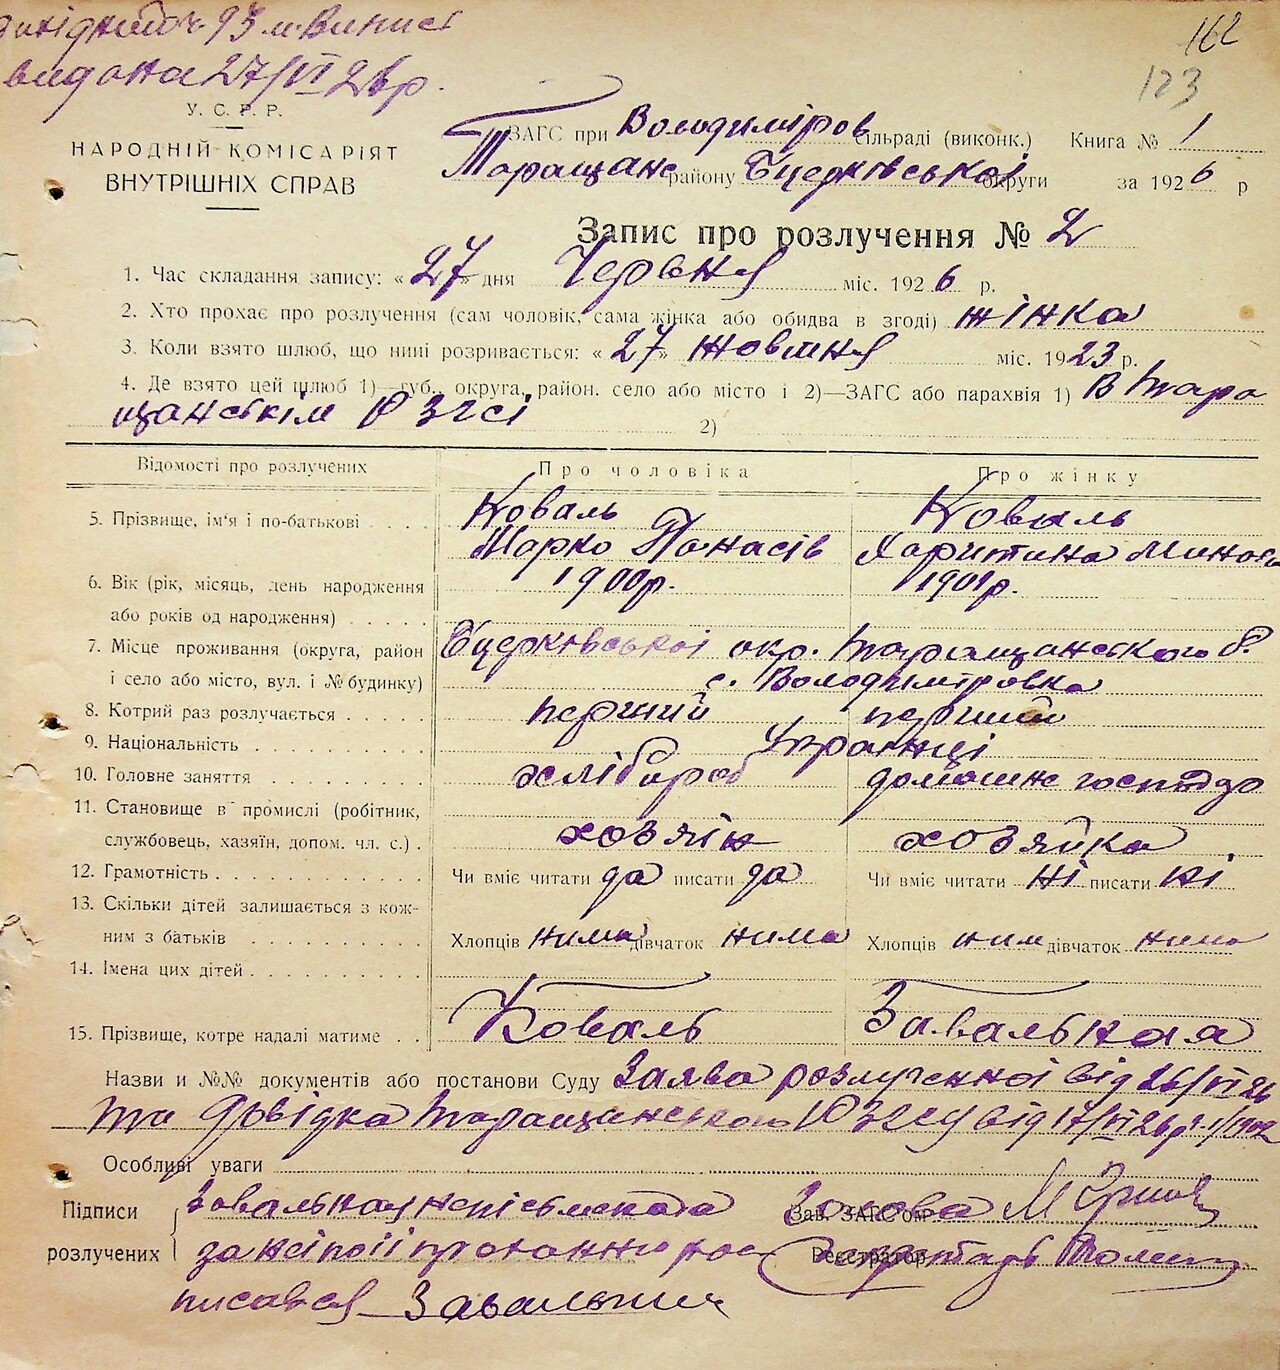 162
видана 27/VI 26 р.
123
У. С. Р. Р.
НАРОДНІЙ КОМІСАРІЯТ
ВНУТРІШНІХ СПРАВ
ЗАГС при Володиміров сільраді (виконк.) Книга № 1
Таращанс району Бцерківської округи за 1926 р
Запис про розлучення № 2
1. Час складання запису: « 27 » дня Червня міс. 1926 р.
2. Хто прохає про розлучення (сам чоловік, сама жінка або обидва в згоді) жінка
3. Коли взято шлюб, що нині розривається: « 27 » жовтня міс. 1923 р.
4. Де взято цей шлюб 1)—губ., округа, район. село або місто і 2)—ЗАГС або парахвія 1) В Тара
щанськім Р ЗГСі 2)
Відомості про розлучених Про чоловіка Про жінку
5. Прізвище, ім'я і по-батькові Коваль Коваль
Марко Панасів Харитина
6. Вік (рік, місяць, день народження 1900р. 1901р.
або років од народження)
7. Місце проживання (округа, район Бцерківської окр. Таращанського р.
і село або місто, вул. і № будинку) с. Володимірівка
8. Котрий раз розлучається перший перший
9. Національність Українці
10. Головне заняття хлібороб домашнє господар
11. Становище в промислі (робітник,
службовець, хазяїн, допом. чл. с.) хозяїн хозяйка
12. Грамотність Чи вміє читати да писати да Чи вміє читати ні писати ні
13. Скільки дітей залишається з кож-
ним з батьків Хлопців нима дівчаток нима Хлопців ним дівчаток нима
14. Імена цих дітей
15. Прізвище, котре надалі матиме Коваль Завальная
Назви и №№ документів або постанови Суду Заява розлученної від 26/VI 26
та довідка Таращанського від 17/VI 26р.
Особливі уваги
Підписи Завальная неписьменна Голова
Зав. ЗАГС'ом
розлучених за неї по її проханню рос Секретарь
Реєстратор
писався Завальний